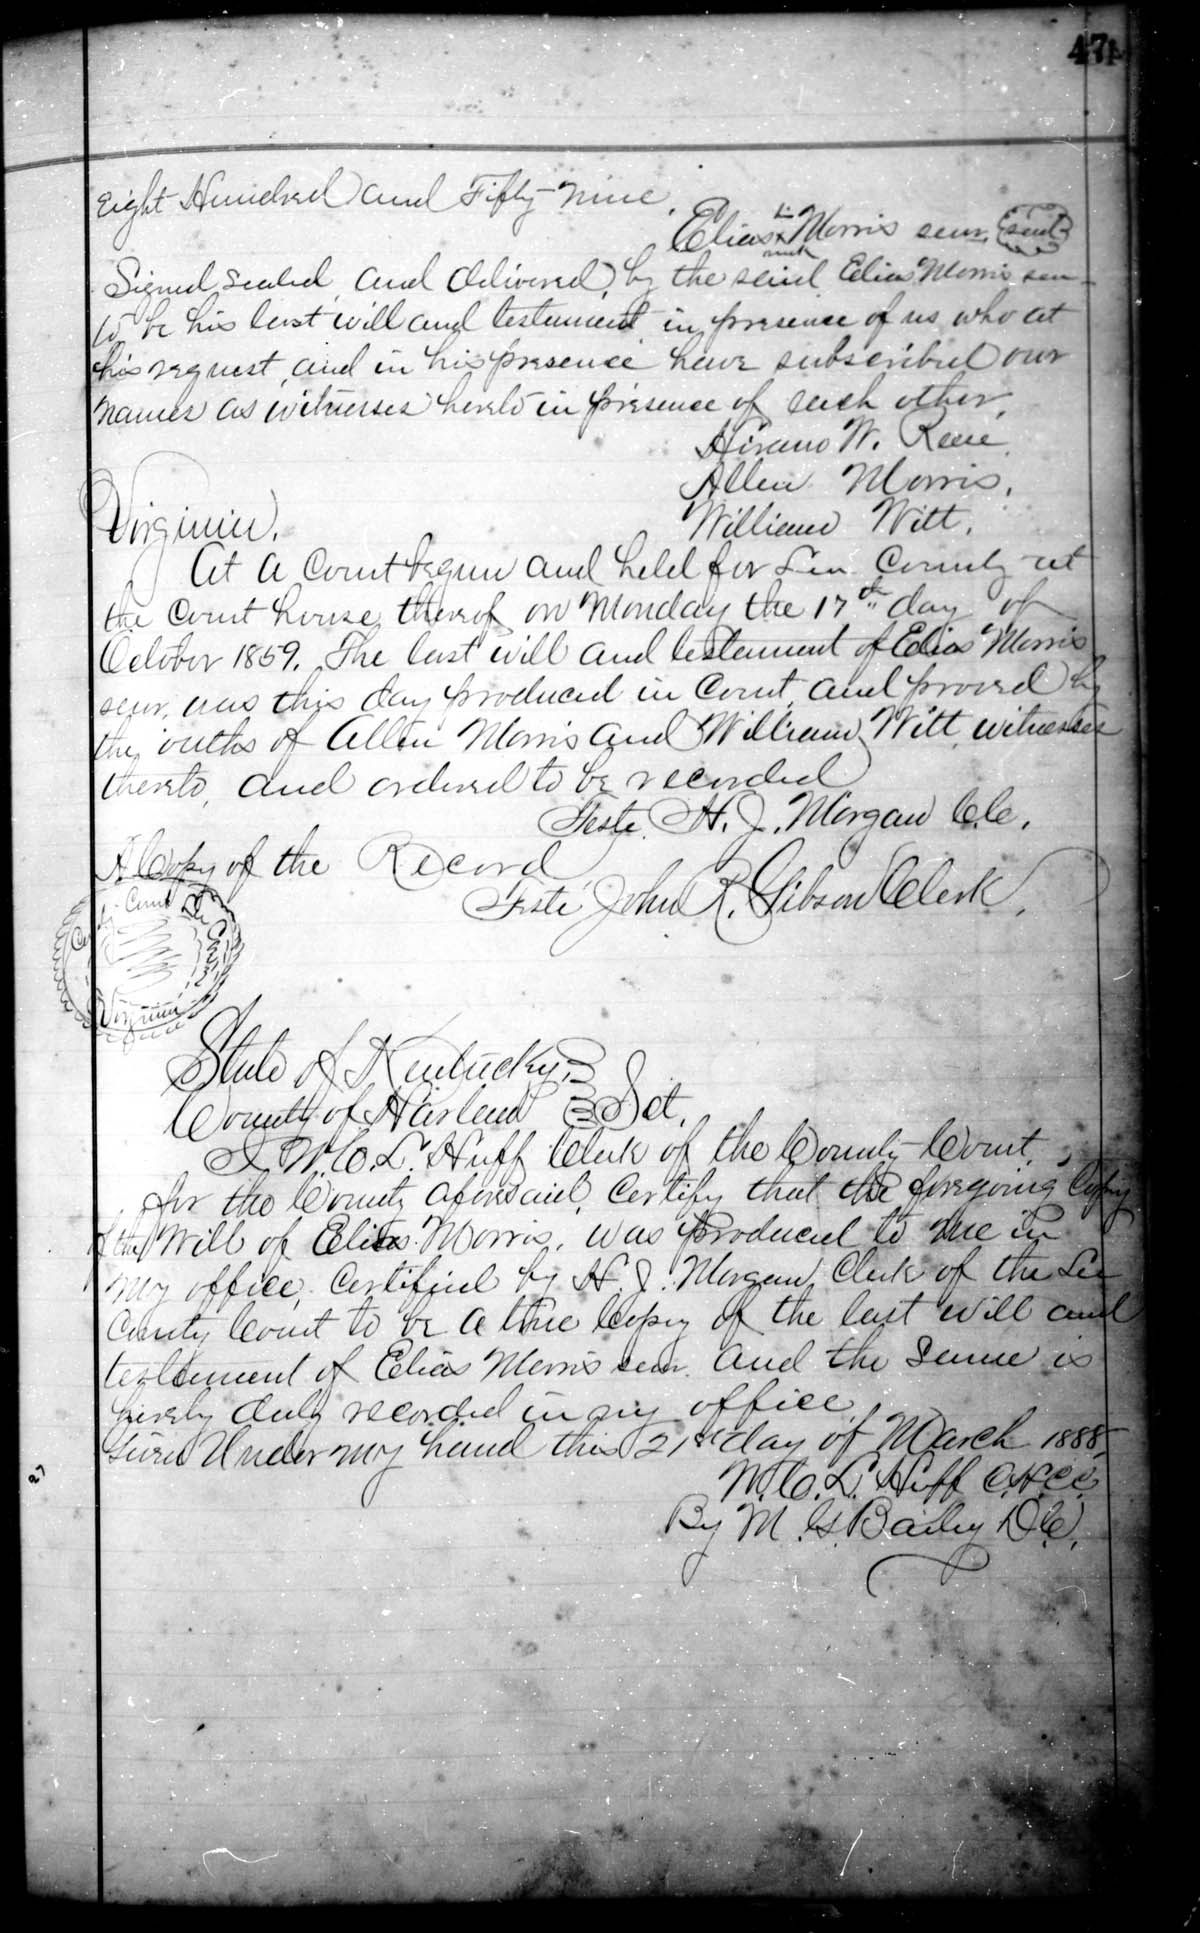 471
Eight Hundred and Fifty-nine.
his
Elias x Morris senr. seal
mark
Signed, sealed and delivered, by the said Elias Morris sen-
to be his last will and testament in presence of us who at
his request, and in his presence have subscribed our
names as witnesses hereto in presence of each other,
Hiram W.
Allen Morris,
William Witt.
Virginia.
At a Court begun and held for Lee County at
the Court house thereof on Monday the 17th day of
October 1859. The last will and testament of Elias Morris
senr. was this day produced in Court and proved by
the oaths of Allen Morris and William Witt witnesses
thereto, and ordered to be recorded
Teste. H. J. Morgan C.C.
A Copy of the Record
Teste John R. Gibson Clerk.
County Court Lee
Virginia
State of Kentucky,
County of Harlan Sct.
I W.C.L. Huff Clerk of the County Court,
for the County aforesaid, Certify that the foregoing Copy
of the Will of Elias Morris, was produced to me in
my office, Certified by H. J. Morgan, Clerk of the Lee
County Court to be a true Copy of the last will and
testement of Elias Morris senr. and the same is
hereby duly recorded in my office.
Given Under my hand this 21st day of March 1888,
W.C.L. Huff C.H.C.C.
By M. G. Bailey D.C.
27